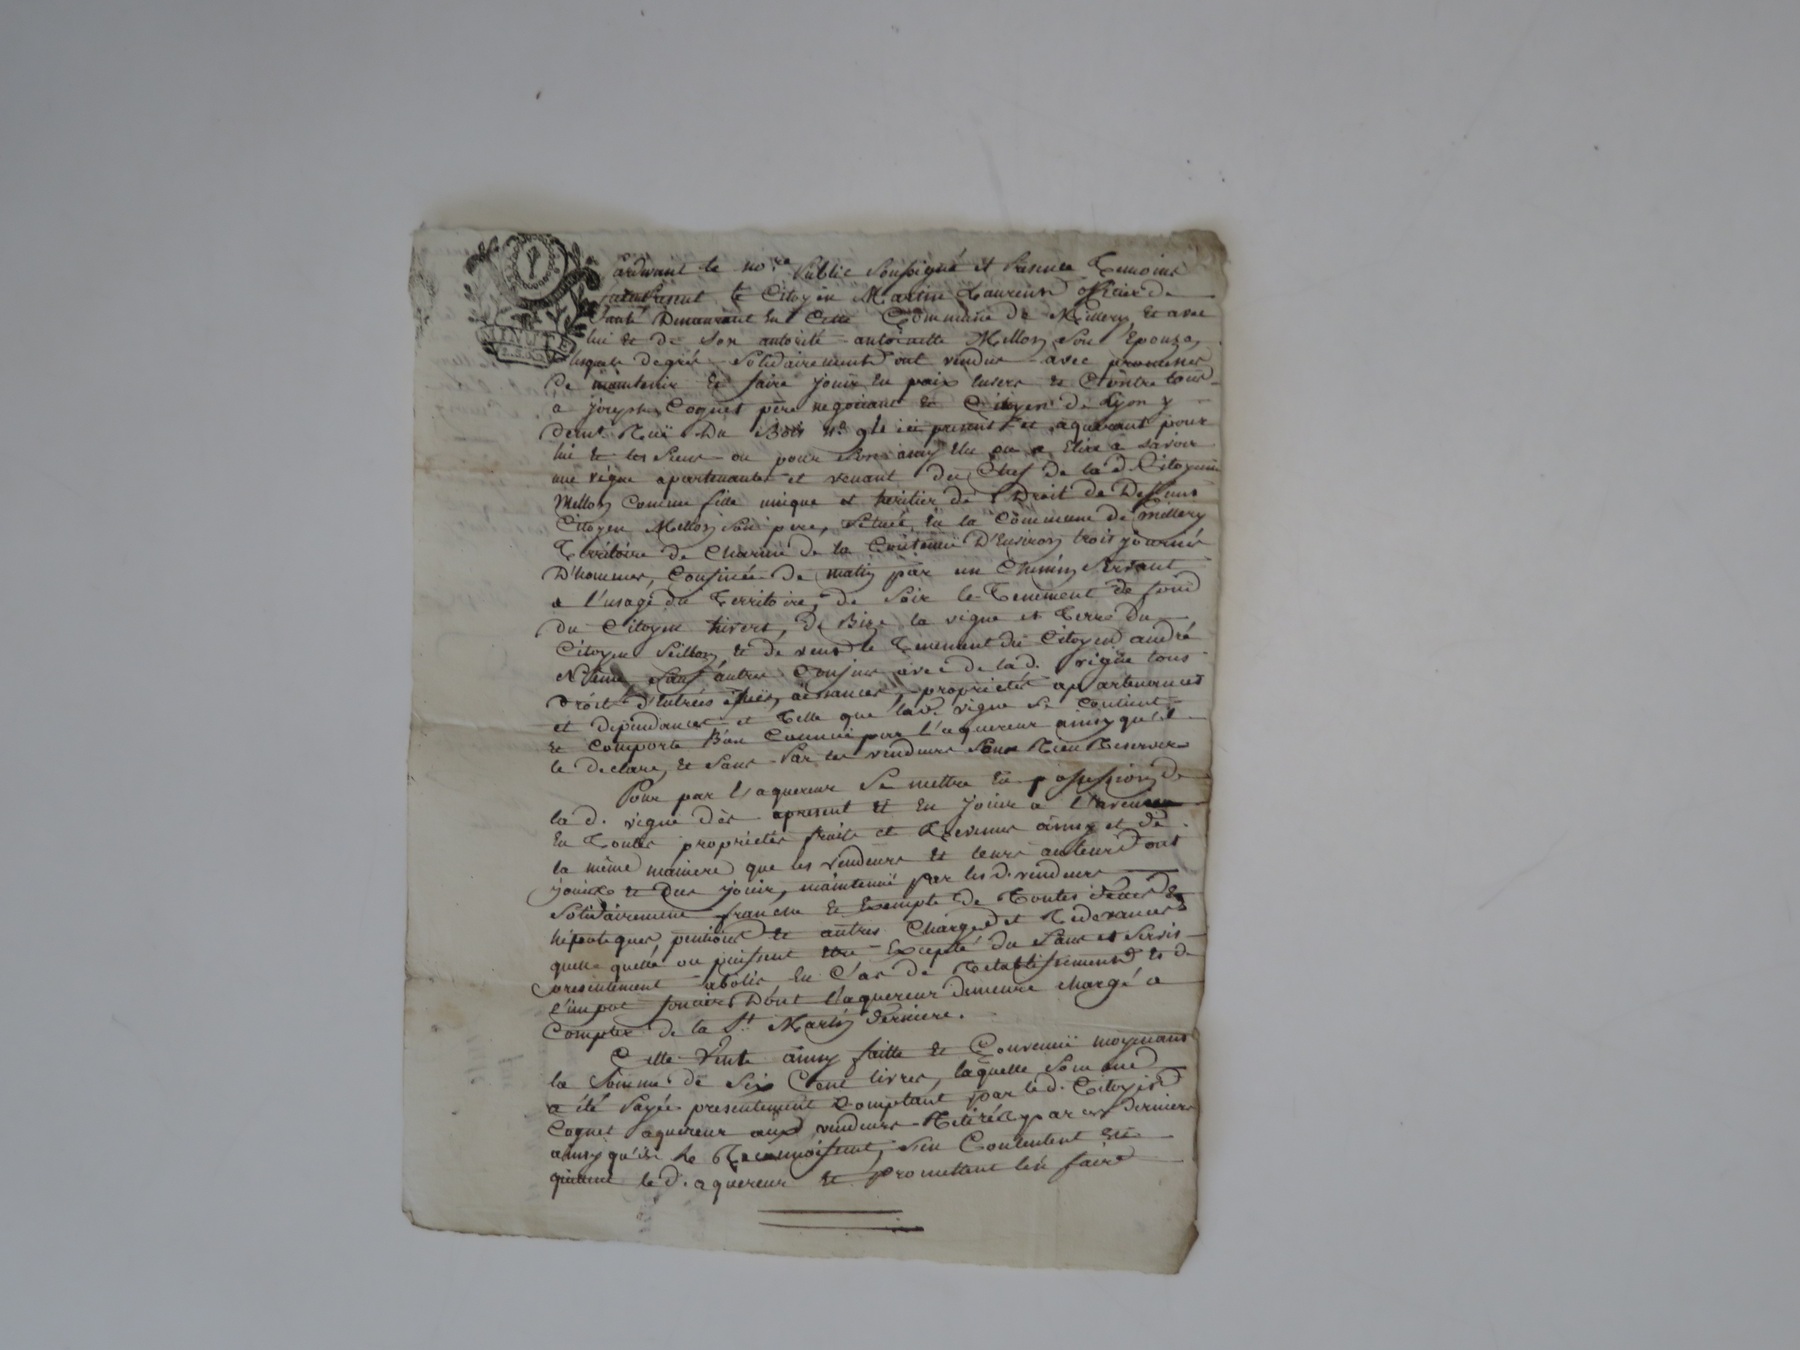 MINUTE
Pardevant le no.re Public soussigné et presence Temoins
fut present le Citoyen Martin Laurent officier de
Santé Demeurant en Cette Commune de Millery, et avec
lui et de son autorité antoinette Mellon son Epouze,
lesquels de gré solidairement ont vendus avec promesses
de maintenir et faire jouir en paix envers et Contre tous
a joseph Coquet père negotiant et Citoyen de Lyon y
demt. Ruë Du Bois n.o ici present et aquerant pour
lui et les siens ou pour son amy elu ou a Elire a savoir
une vigne apartenante et venant du Chef de la d. Citoyenne
Mellon Comme fille unique et heritier de Droit de Deffunt
Citoyen Mellon son pere, située en la Commune de Millery
Territoire de Charine de la Contenue D'Environ trois journés
D'hommes, Confinée de matin par un Chemin servant
a l'usage du Territoire, de soir le Tenement de fond
du Citoyen hivert, de Bize la vigne et Terre du
Citoyen Seillon, et de vent le Tenement du Citoyen andré
sauf autre Confins avec de la d. vigne tous
Droits D'Entrées aisances, proprietés apartenances
et dependances et Telle que la d. vigne se Contient
et Comporte Bien Connue par l'aquereur ainsy qu'il
le declare, et sans par les vendeurs sans Rien Reserver
Pour par l'aquereur se mettre en possession de
la d. vigne dès apresent et en jouir a l'avenir
en Toutes proprietés fruits et Revenus ainsy et de
la même maniere que les vendeurs et leurs auteurs ont
jouis et dus jouir, maintenue par les d. vendeurs
solidairement franche et Exempte de Toutes dettes et
hipoteques, pentions et autres Charges et Redevances
quelle quelle ou puissent etre Excepté du sans et servis
presentement abolis en Cas de Retablissement et de
l'impot foncier Dont l'aquereur demeure chargé a
Compter de la St. Martin derniere.
Cette Vente ainsy faitte et Convenuë moyenant
la somme de six Cent livres, laquelle somme
a été Payée presentement Comptant par le d. Citoyen
Coquet aquereur aux vendeurs Retirée par ces derniers
ainsy qu'ils le Reconnoissent, s'en Contentent en
quittent le d. aquereur et promettent l'en faire